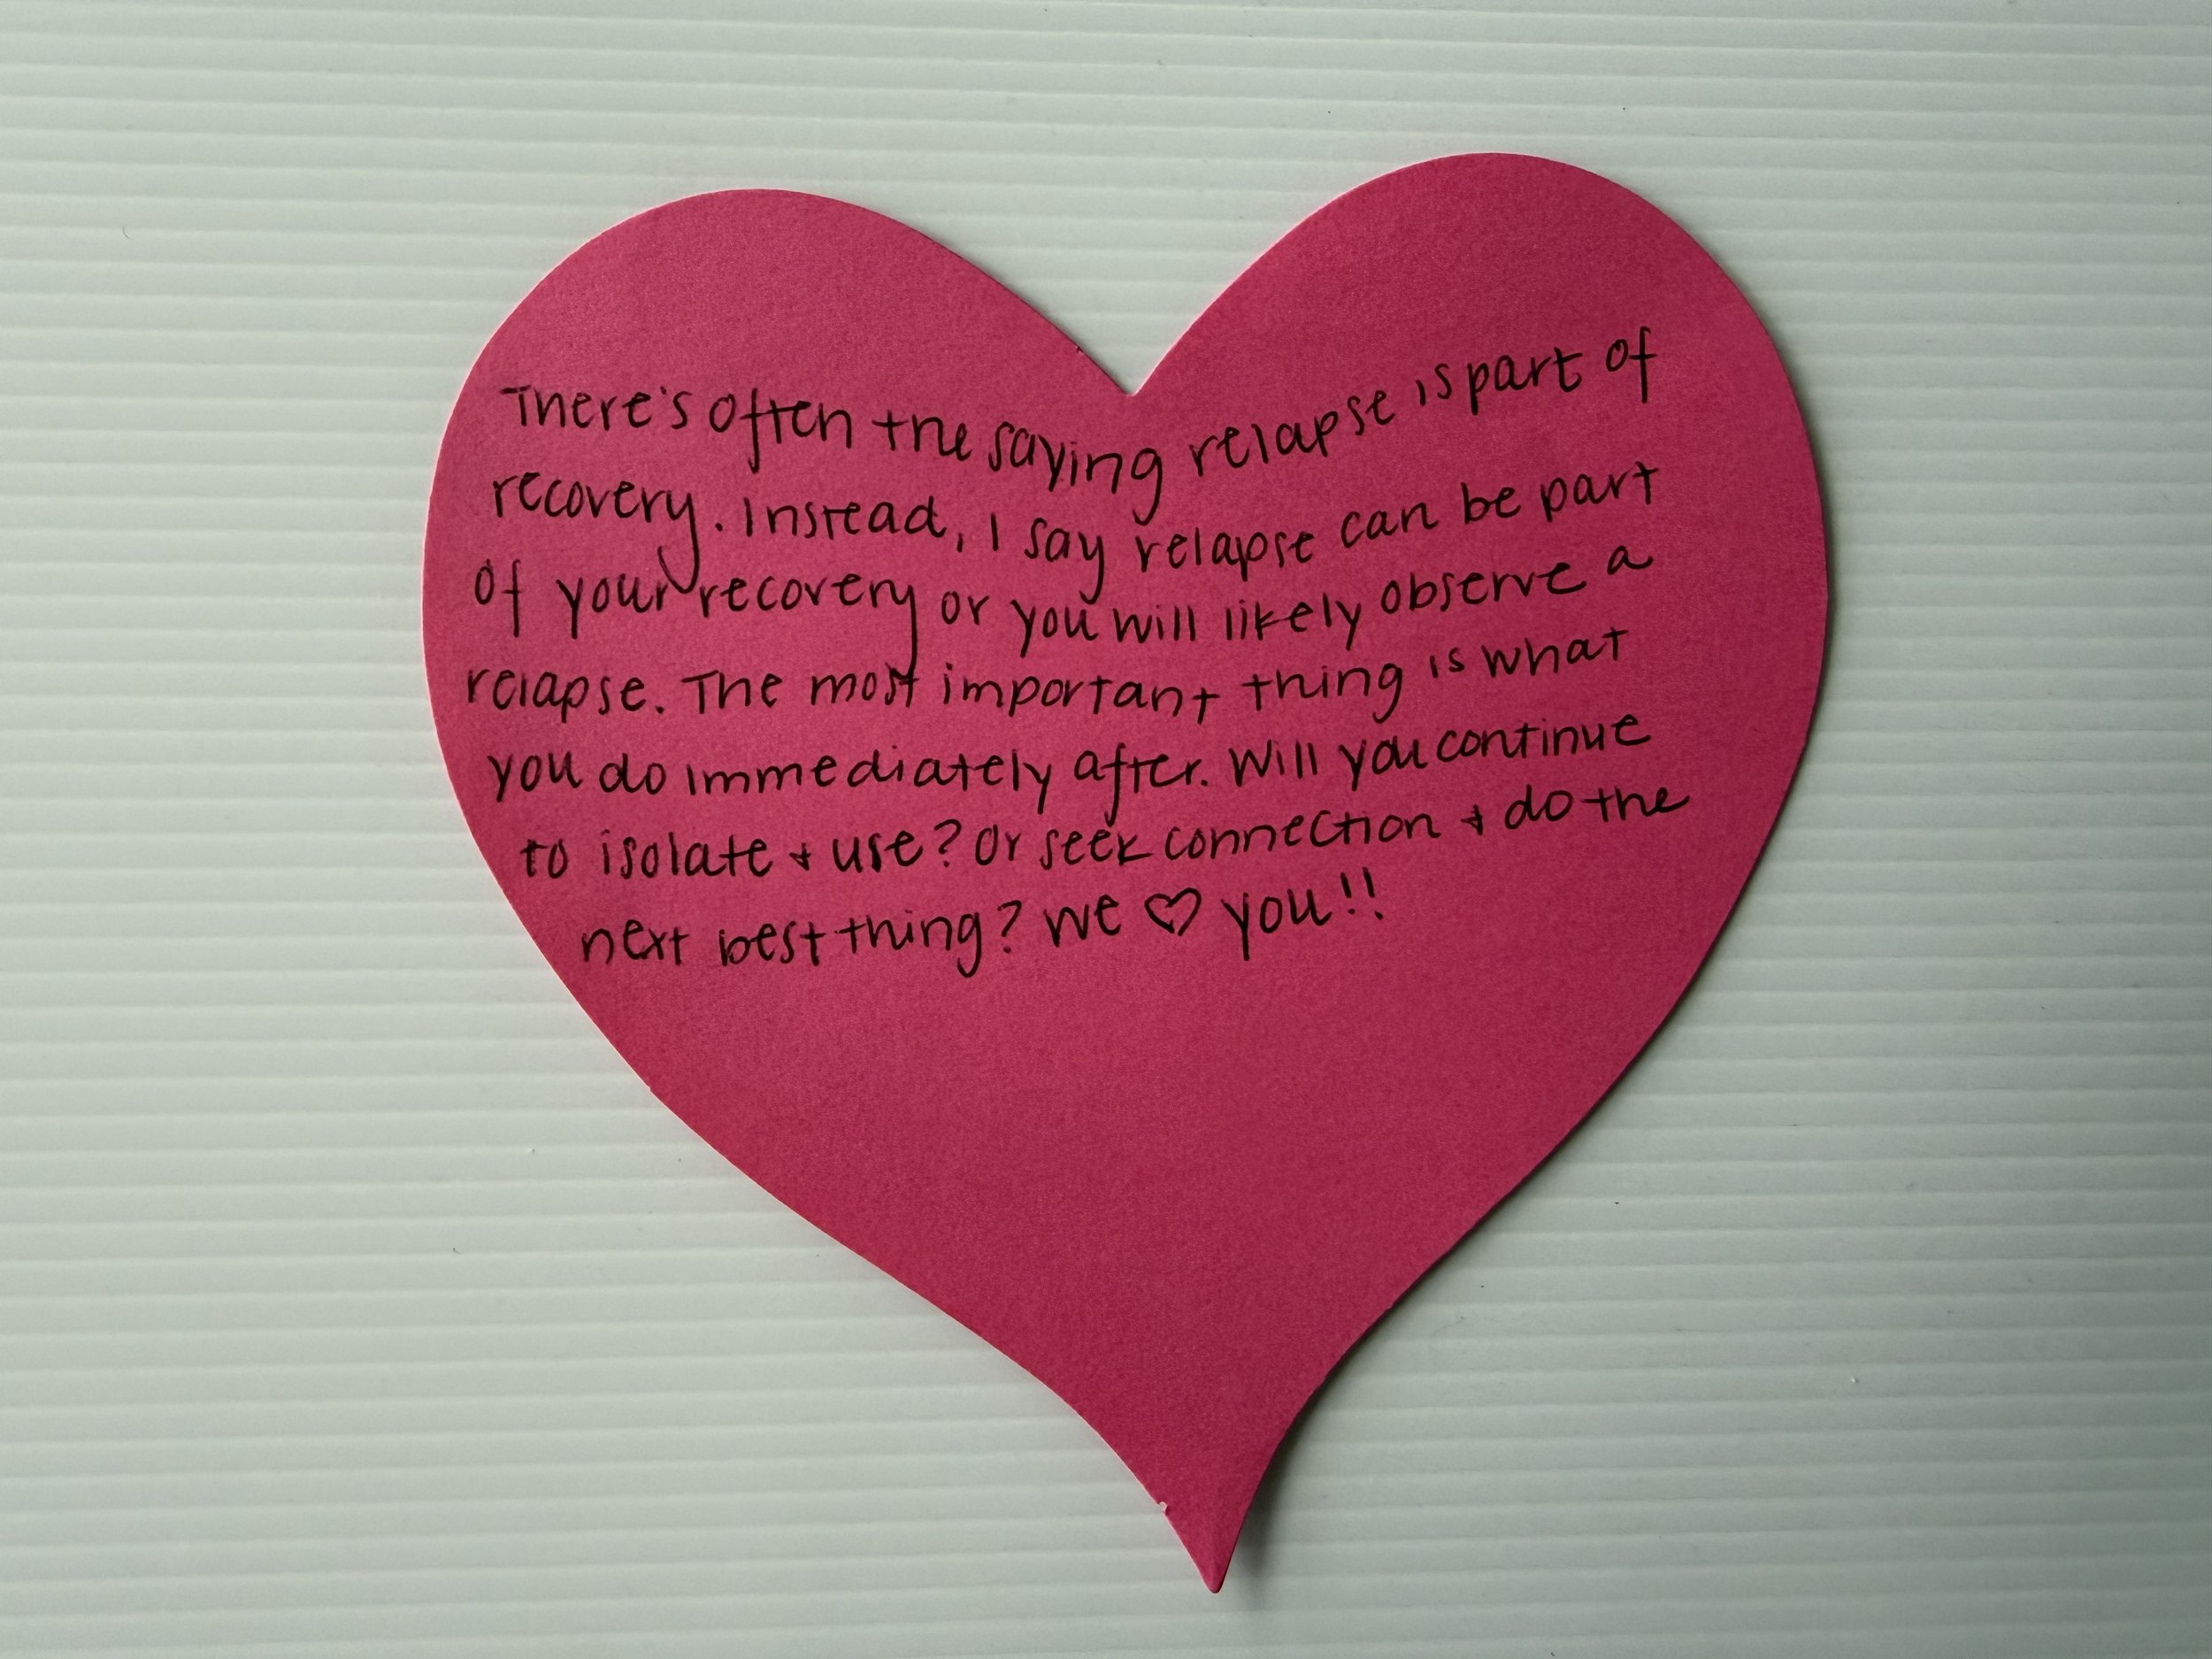 There's often the saying relapse is part of
recovery. Instead, I say relapse can be part
of your recovery or you will likely observe a
relapse. The most important thing is what
you do immediately after. Will you continue
to isolate + use? Or seek connection + do the
next best thing? We ♡ you!!